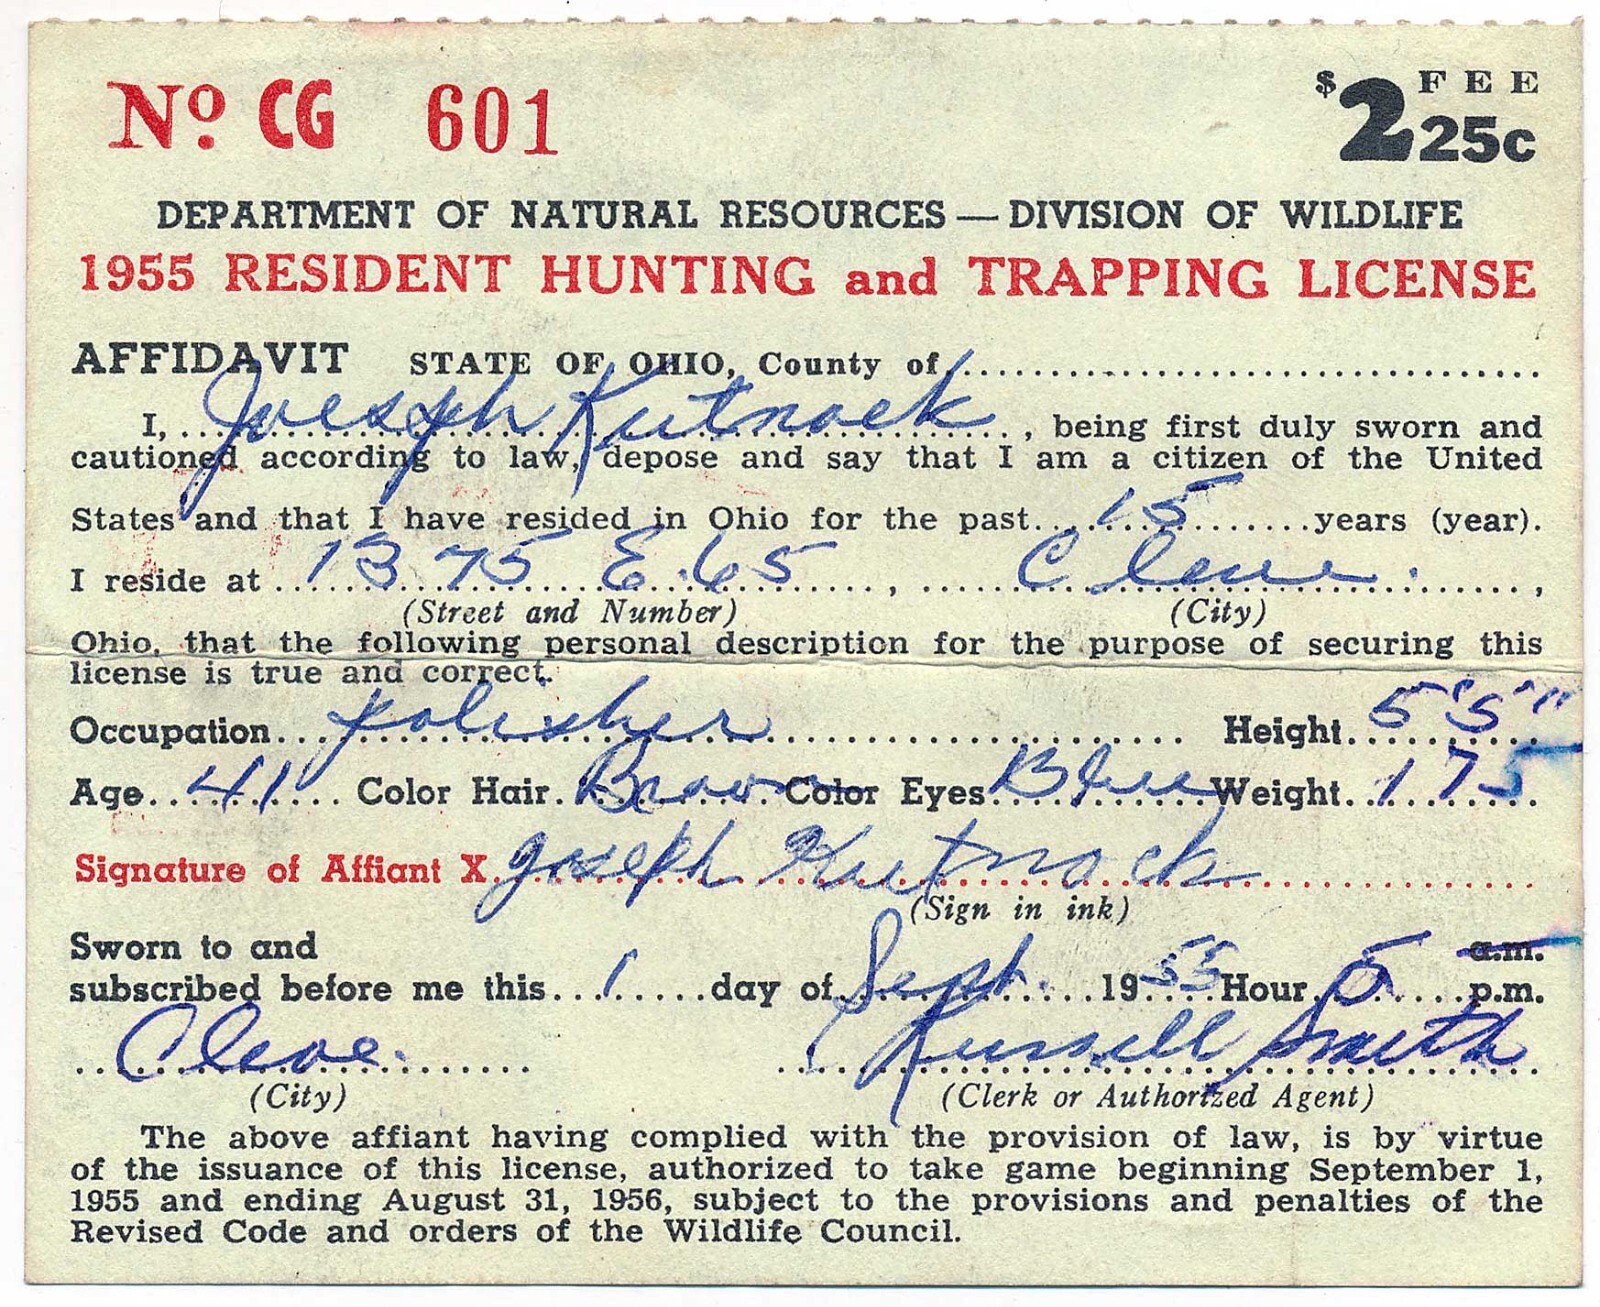 No CG 601
$2 25c FEE
DEPARTMENT OF NATURAL RESOURCES — DIVISION OF WILDLIFE
1955 RESIDENT HUNTING and TRAPPING LICENSE
AFFIDAVIT STATE OF OHIO, County of
I, Joesph Kutnock, being first duly sworn and
cautioned according to law, depose and say that I am a citizen of the United
States and that I have resided in Ohio for the past 15 years (year).
I reside at 1375 E. 65, Cleve.,
(Street and Number) (City)
Ohio, that the following personal description for the purpose of securing this
license is true and correct.
Occupation polisher Height 5'5"
Age 41 Color Hair Brown Color Eyes Blue Weight 175
Signature of Affiant X Joseph Kutnock
(Sign in ink)
Sworn to and a.m.
subscribed before me this 1 day of Sept. 1955 Hour 5 p.m.
Cleve. Russell Smith
(City) (Clerk or Authorized Agent)
The above affiant having complied with the provision of law, is by virtue
of the issuance of this license, authorized to take game beginning September 1,
1955 and ending August 31, 1956, subject to the provisions and penalties of the
Revised Code and orders of the Wildlife Council.